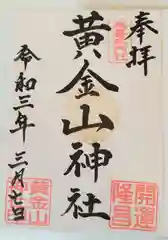 奉拝
黄金山神社
令和三年 三月七日
黄金山
開運
隆昌